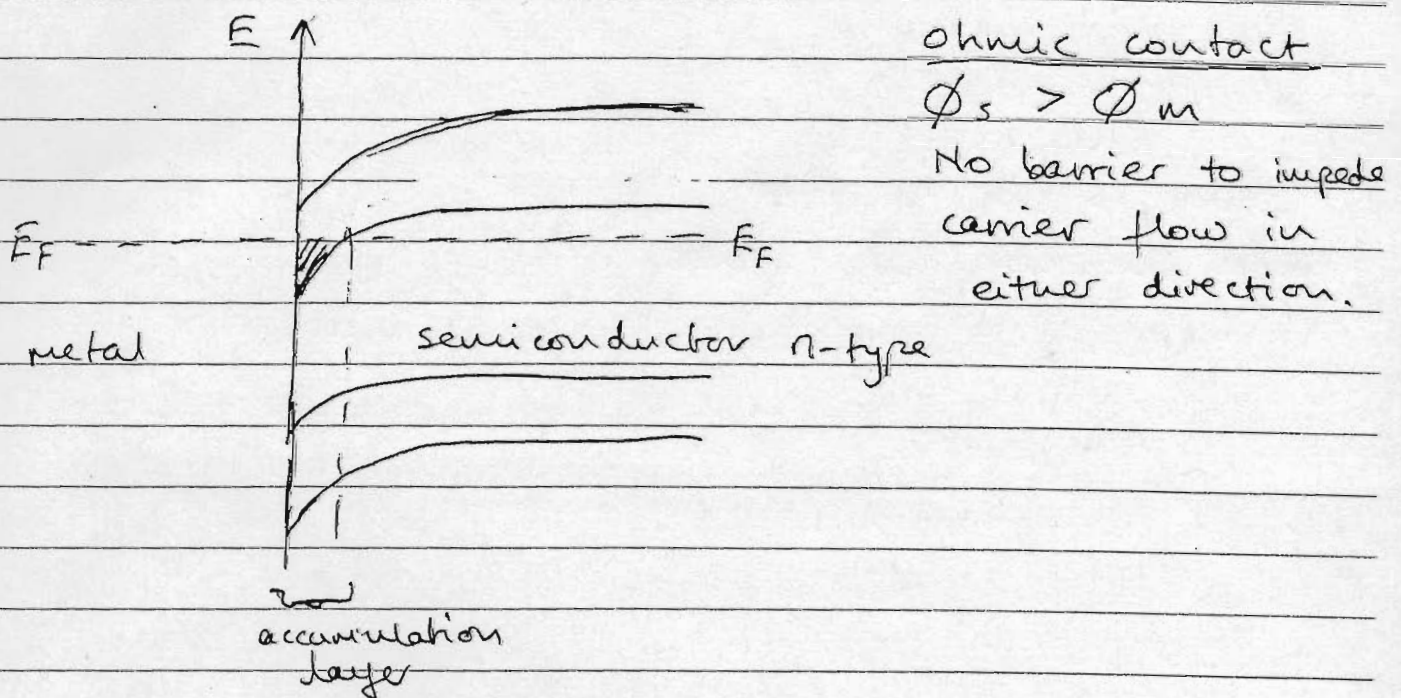 E
ohmic contact
Øs > Øm
No barrier to impede
carrier flow in
either direction.
EF
EF
metal
semiconductor n-type
accumulation
layer